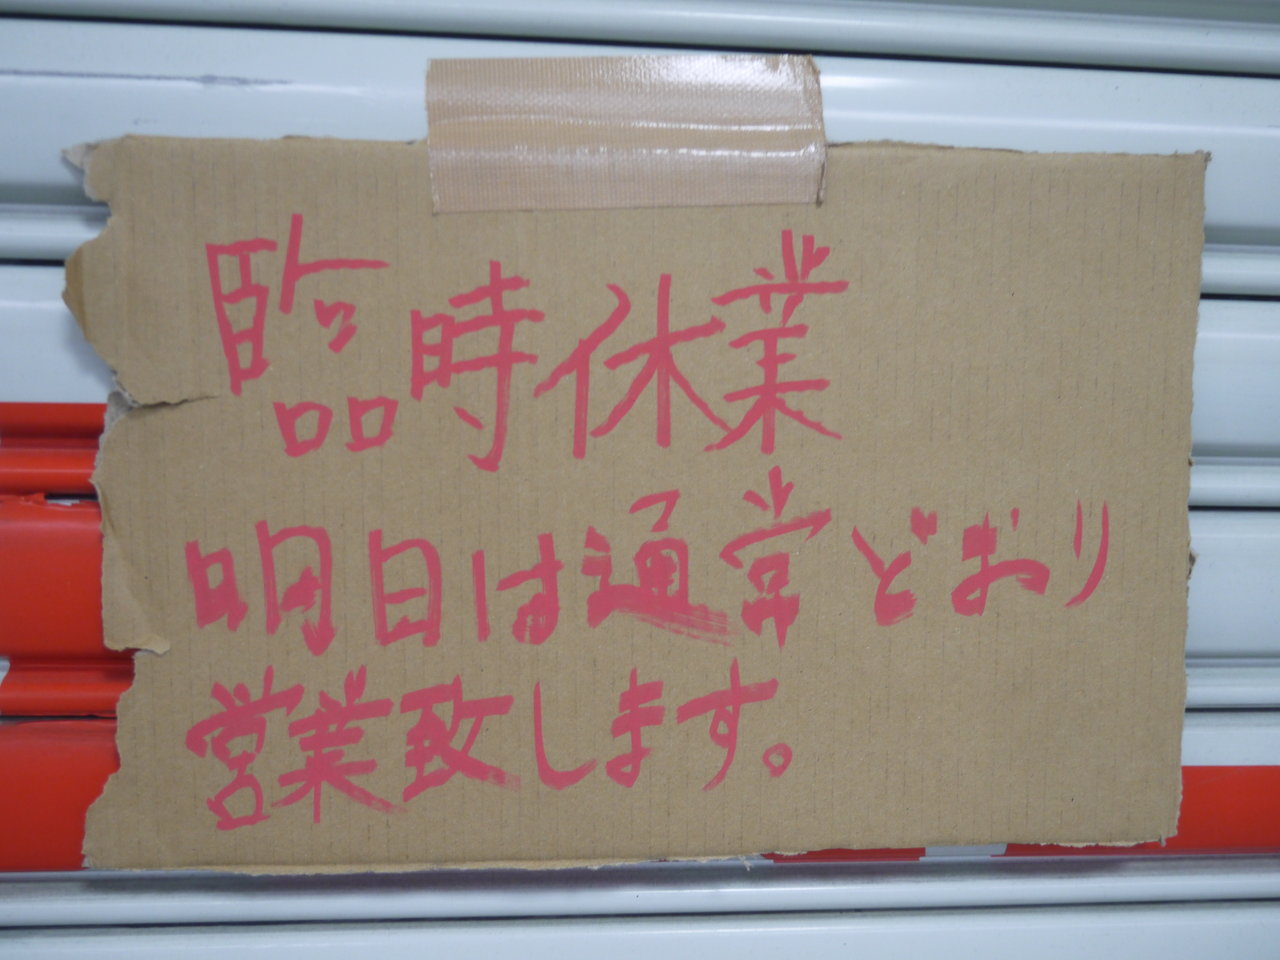 臨時休業
明日は通常どおり
営業致します。